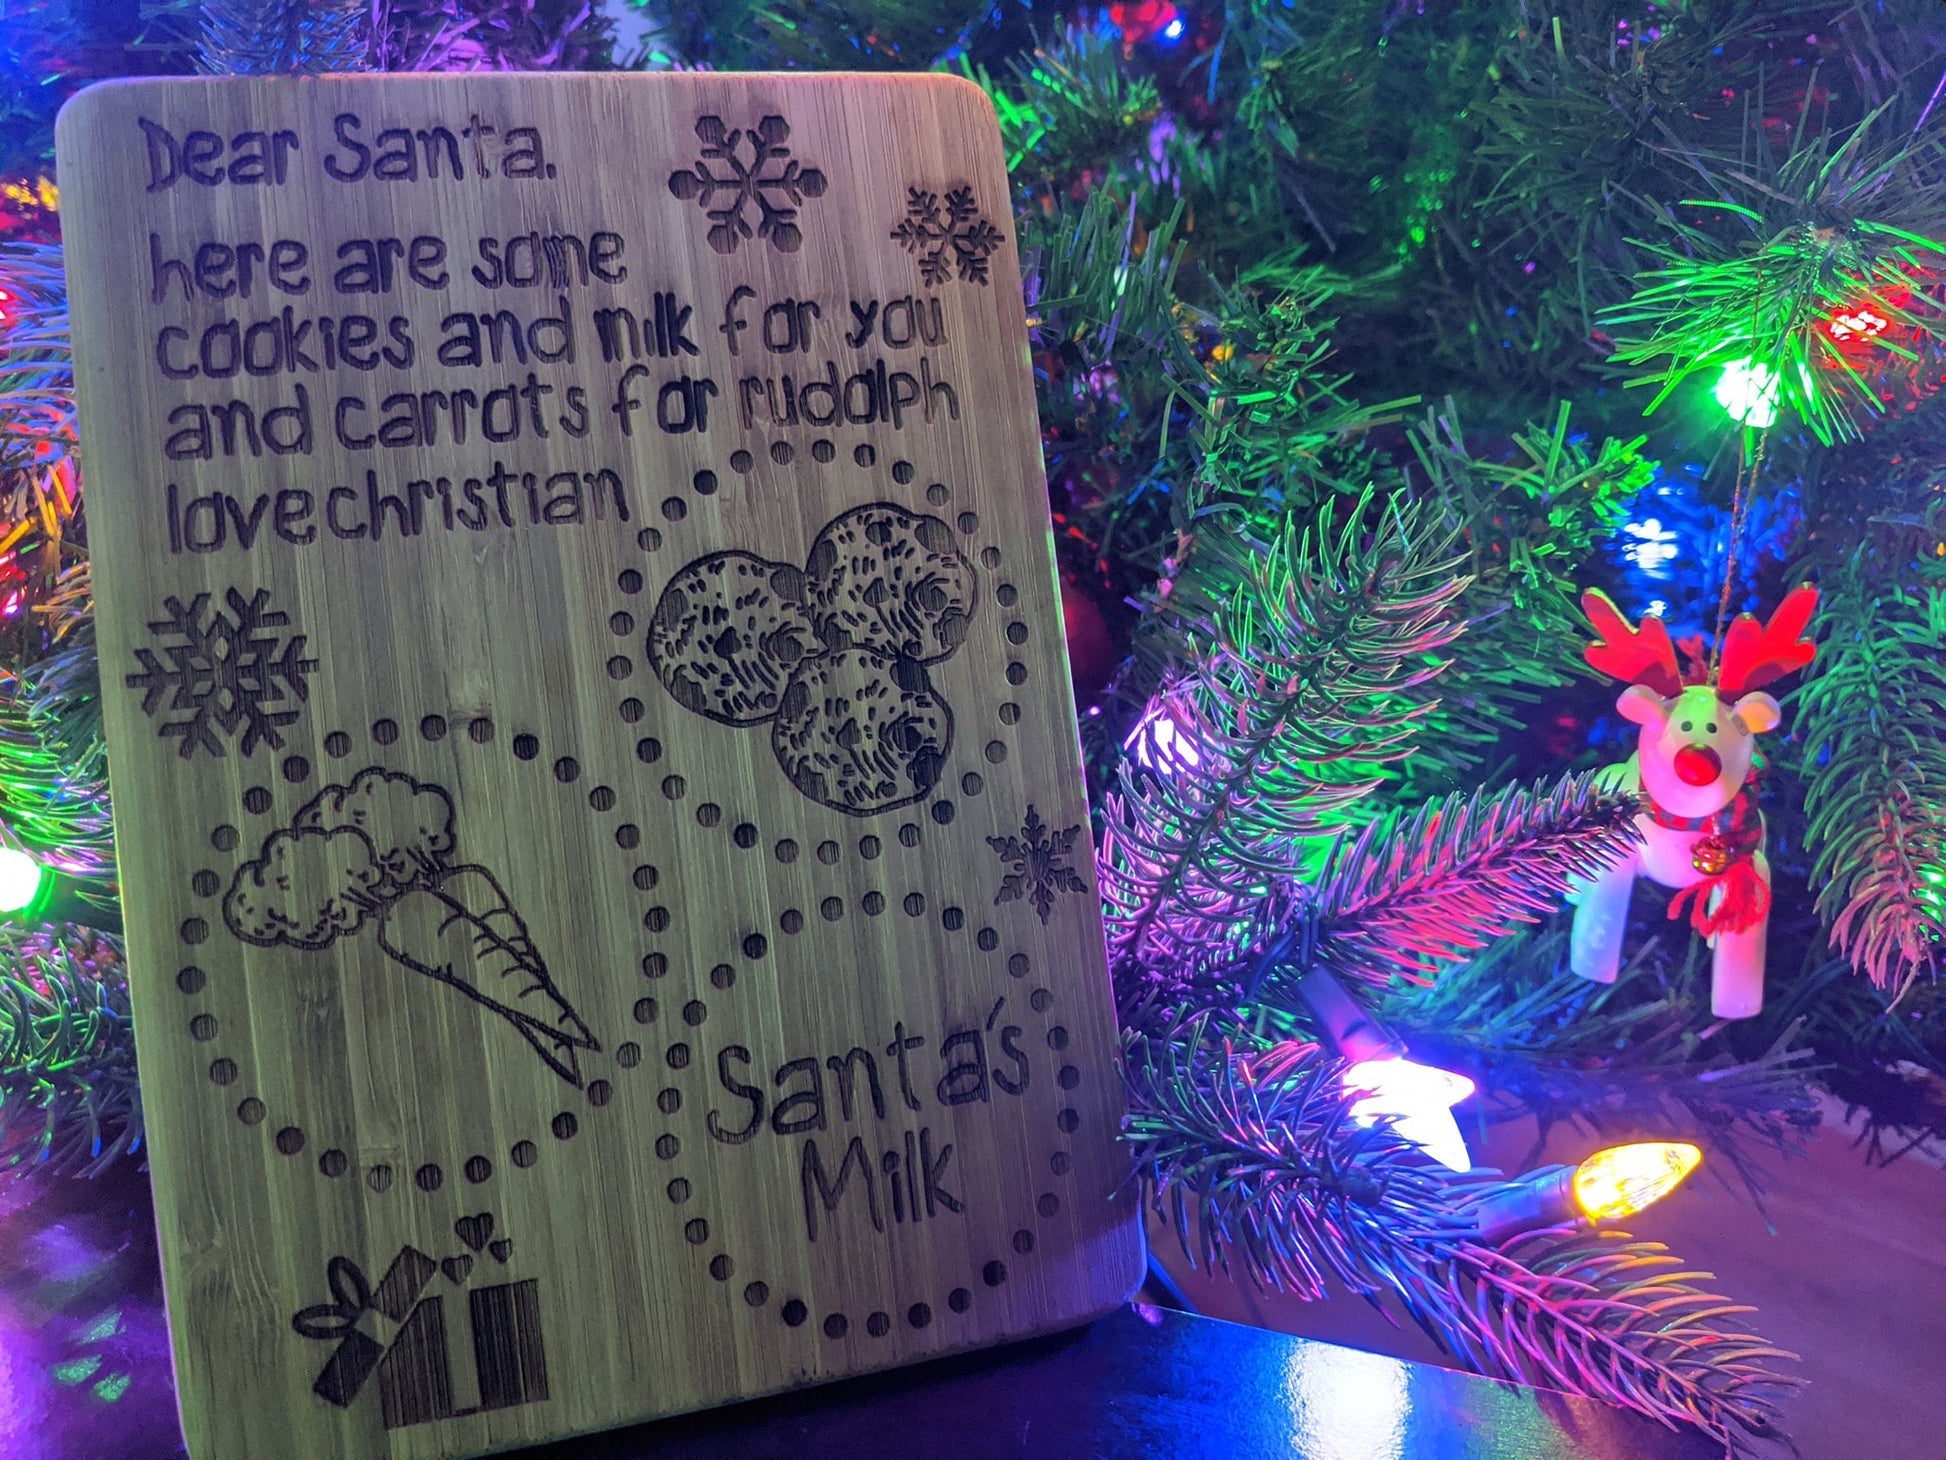 Dear Santa.
here are some
cookies and milk for you
and carrots for rudolph
love christian
Santa's
Milk